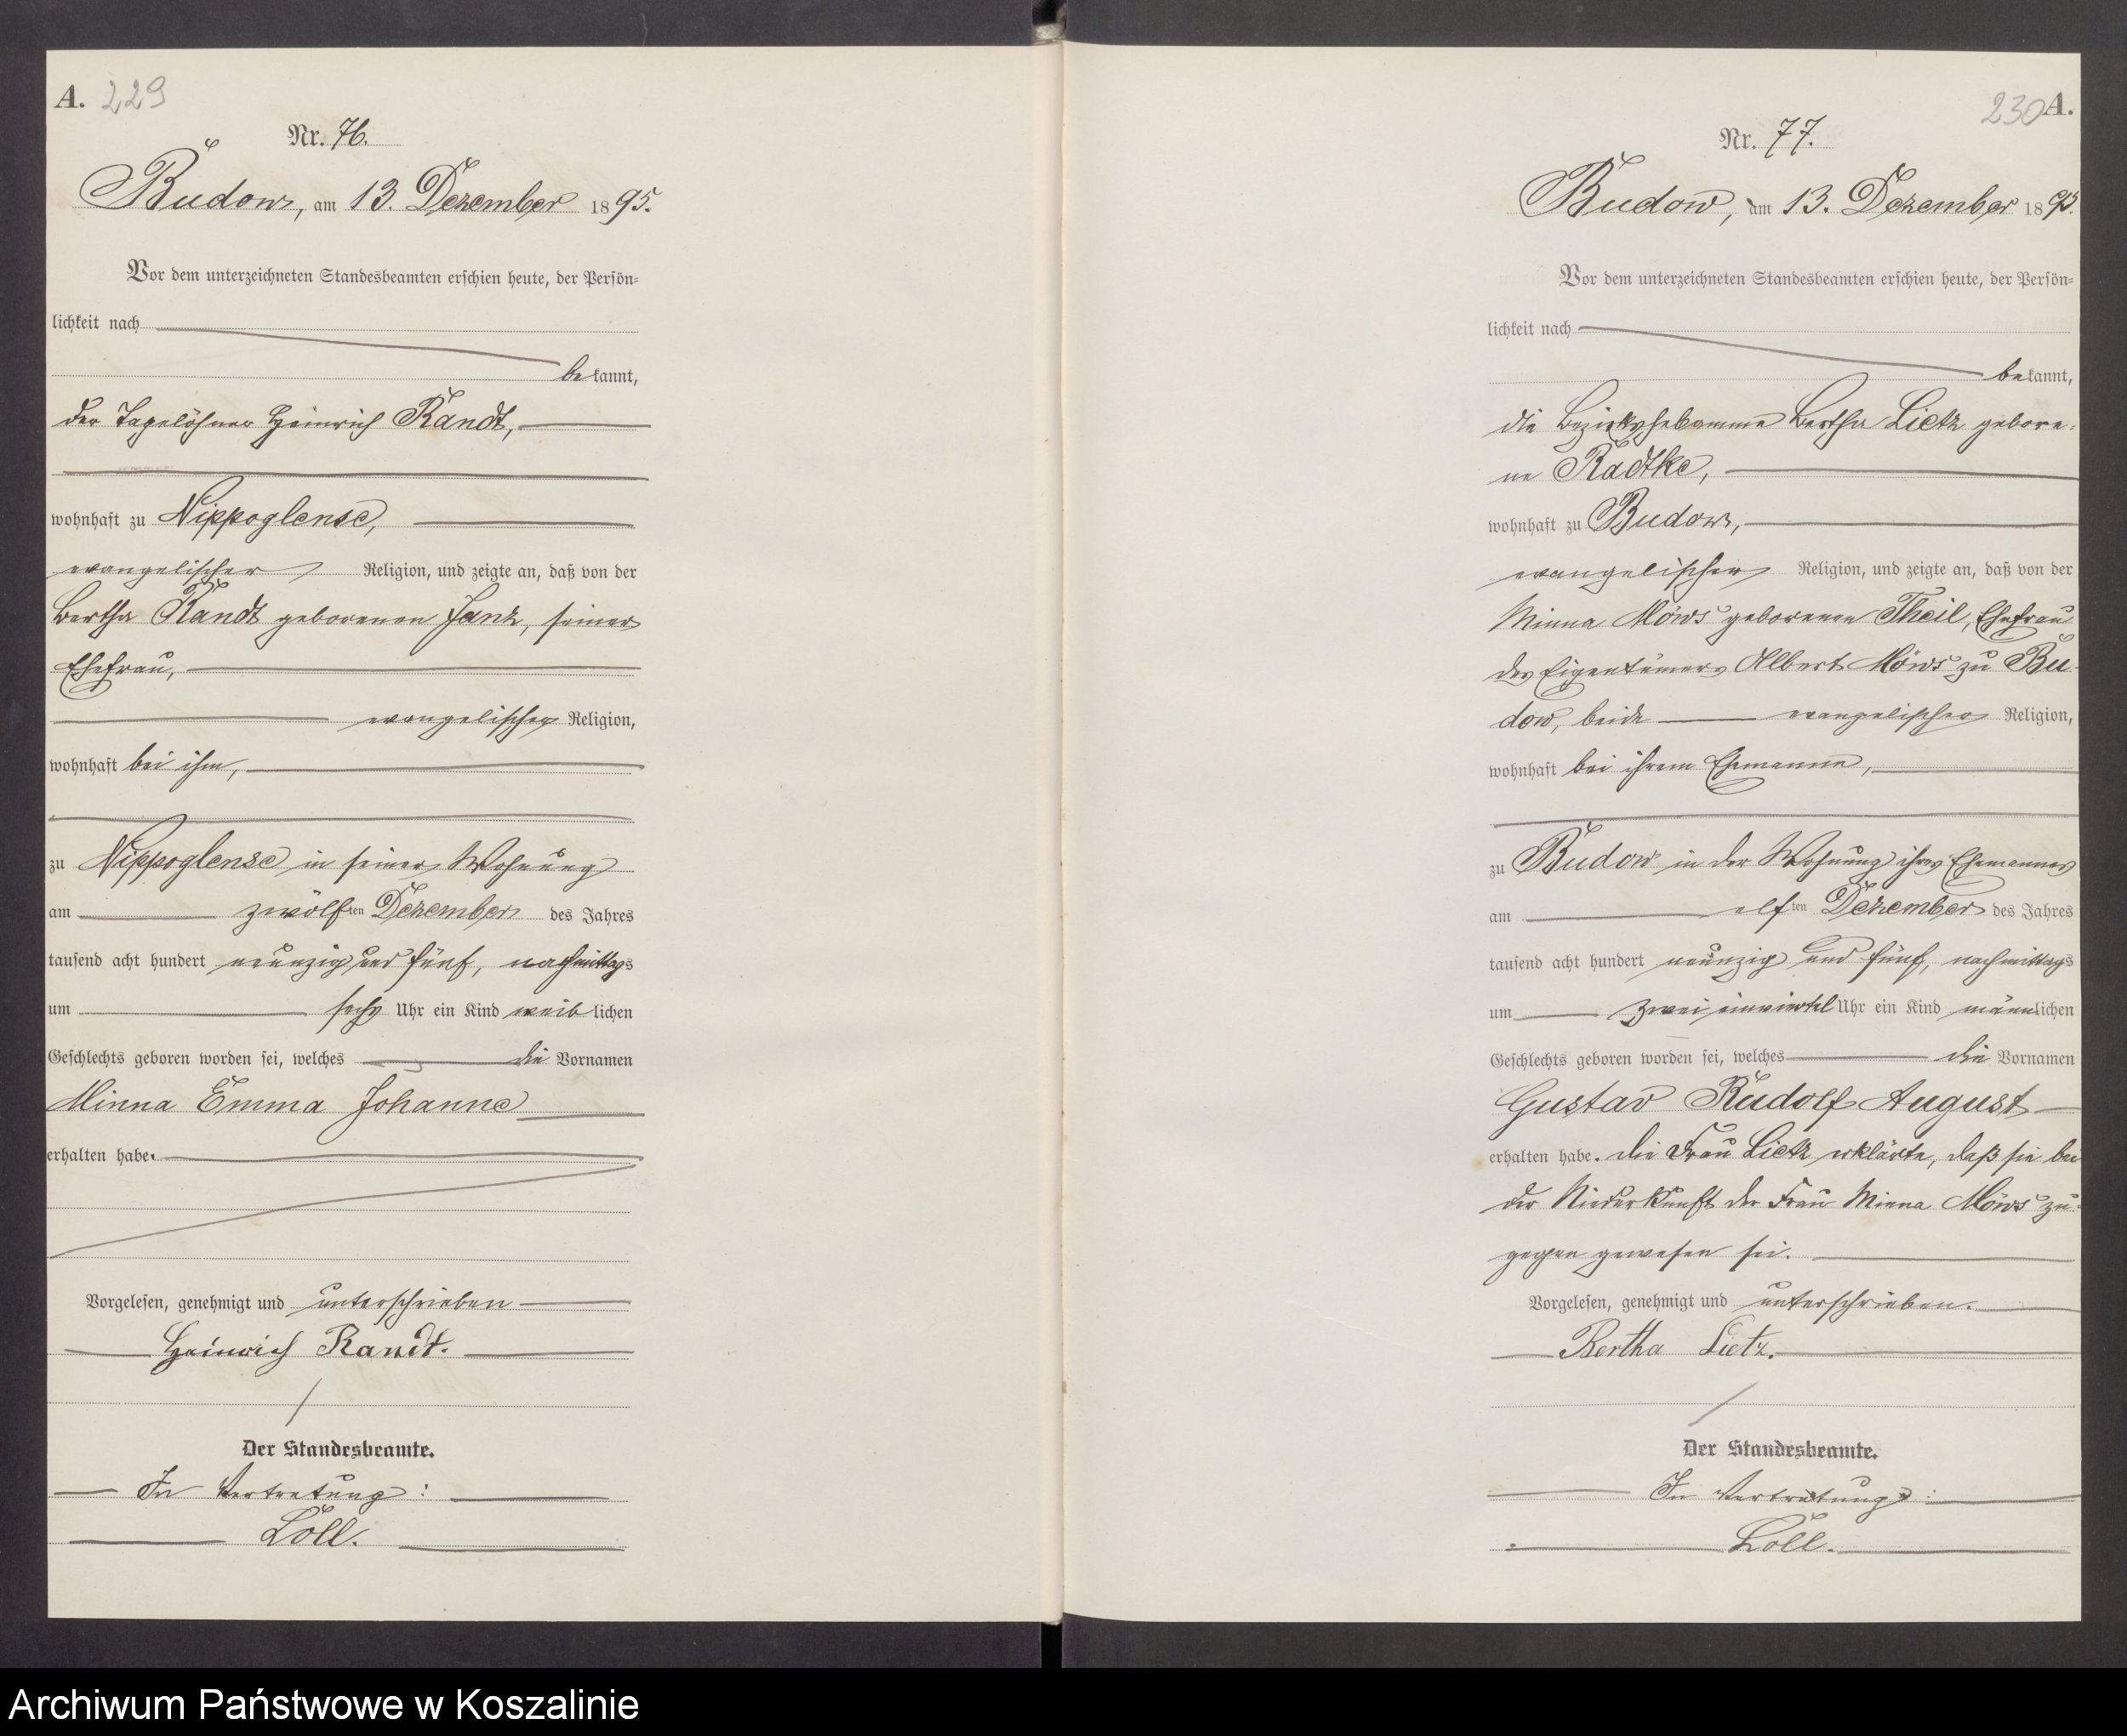 A. 229
Nr. 76.
Budow, am 13. Dezember 1895.
Vor dem unterzeichneten Standesbeamten erschien heute, der Persön-
lichkeit nach
bekannt,
der Tagelöhner Heinrich Randt,
wohnhaft zu Nippoglense,
evangelischer Religion, und zeigte an, daß von der
Bertha Randt geborenen Janz, seiner
Ehefrau,
evangelischer Religion,
wohnhaft bei ihm,
zu Nippoglense in seiner Wohnung
am zwölften Dezember des Jahres
tausend acht hundert neunzig und fünf, nachmittags
um sechs Uhr ein Kind weiblichen
Geschlechts geboren worden sei, welches die Vornamen
Minna Emma Johanne
erhalten habe.
Vorgelesen, genehmigt und unterschrieben
Heinrich Randt.
Der Standesbeamte.
In Vertretung:
Löll.
230 A.
Nr. 77.
Budow, am 13. Dezember 1895.
Vor dem unterzeichneten Standesbeamten erschien heute, der Persön-
lichkeit nach
bekannt,
die Bezirkshebamme Bertha Lietz gebore-
ne Radtke,
wohnhaft zu Budow,
evangelischer Religion, und zeigte an, daß von der
Minna Möws geborenen Theil, Ehefrau
des Eigentümers Albert Möws zu Bu-
dow, beide evangelischer Religion,
wohnhaft bei ihrem Ehemanne,
zu Budow in der Wohnung ihres Ehemannes
am elften Dezember des Jahres
tausend acht hundert neunzig und fünf, nachmittags
um zwei einviertel Uhr ein Kind männlichen
Geschlechts geboren worden sei, welches die Vornamen
Gustav Rudolf August
erhalten habe. Die Frau Lietz erklärte, daß sie bei
der Niederkunft der Frau Minna Möws zu-
gegen gewesen sei.
Vorgelesen, genehmigt und unterschrieben.
Bertha Lietz.
Der Standesbeamte.
In Vertretung:
Löll.
Archiwum Państwowe w Koszalinie